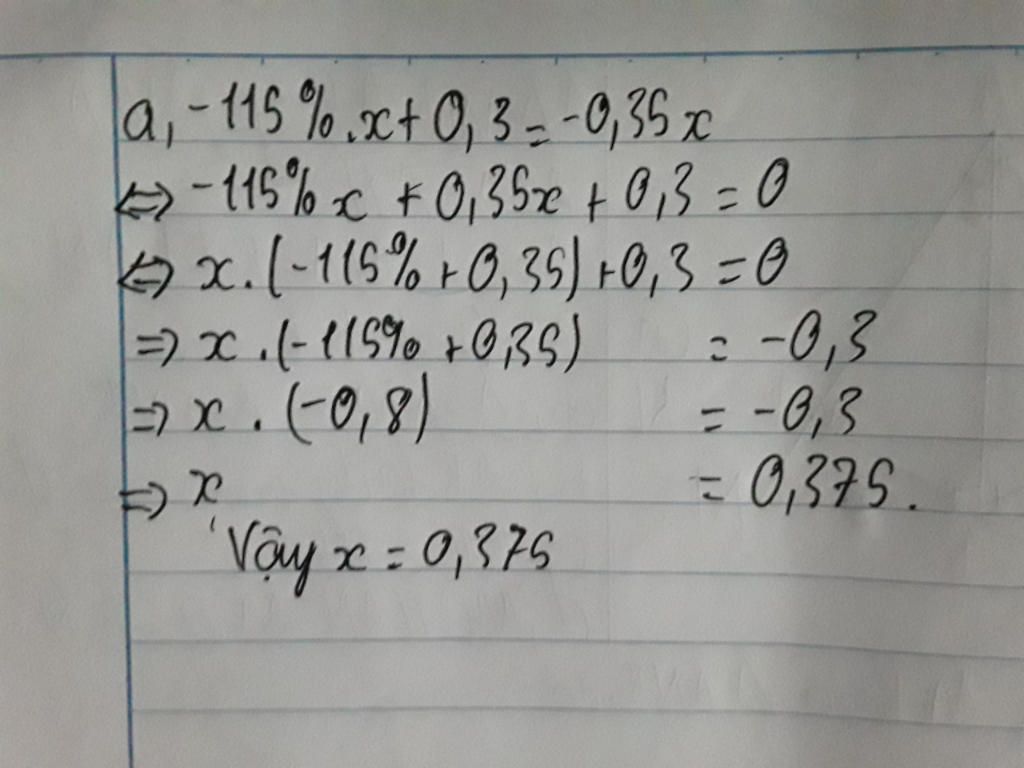 a, -115%.x+0,3=-0,35x
⇔ -115%x + 0,35x + 0,3 = 0
⇔ x.(-115%+0,35)+0,3=0
⇒ x.(-115%+0,35) = -0,3
⇒ x.(-0,8) = -0,3
⇒ x = 0,375.
Vậy x = 0,375